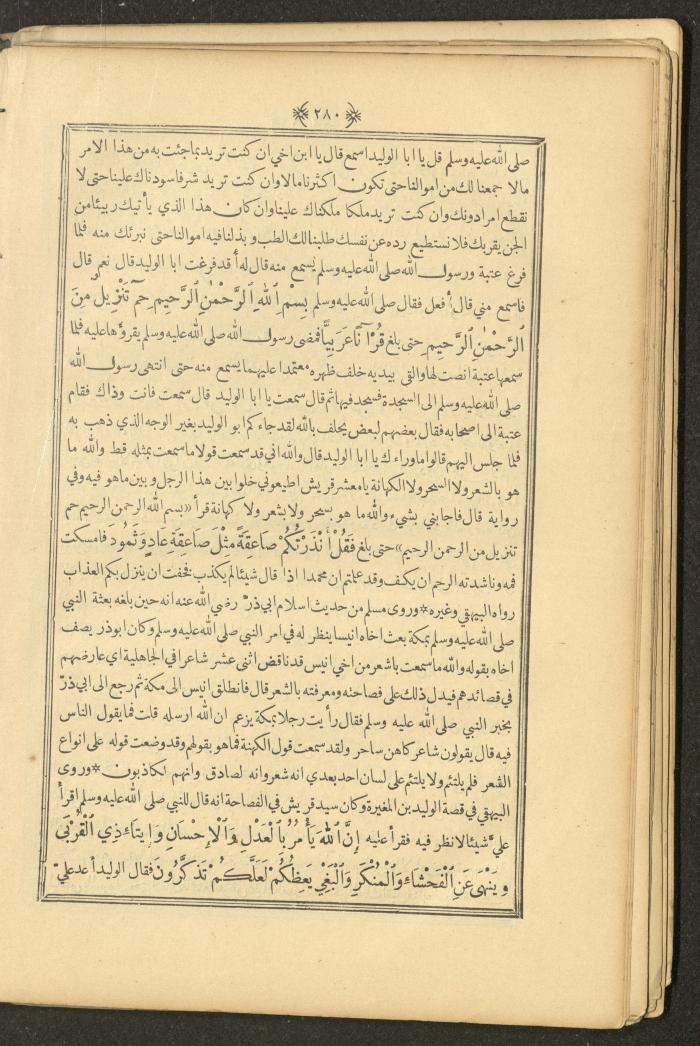 ﴿٢٨٠﴾
صلى الله عليه وسلم قل يا ابا الوليد اسمع قال يا ابن اخي ان كنت تريد بما جئت به من هذا الامر
مالا جمعنا لك من اموالنا حتى تكون اكثرنا مالا وان كنت تريد شرفا سودناك علينا حتى لا
نقطع امرا دونك وان كنت تريد ملكا ملكناك علينا وان كان هذا الذي يأتيك ربيئا من
الجن يقربك فلا نستطيع رده عن نفسك طلبنا لك الطب وبذلنا فيه اموالنا حتى نبرئك منه فلما
فرغ عتبة ورسول الله صلى الله عليه وسلم يسمع منه قال له أقد فرغت ابا الوليد قال نعم قال
فاسمع مني قال أفعل فقال صلى الله عليه وسلم بِسْمِ اللهِ الرَّحْمٰنِ الرَّحِيمِ حم تَنْزِيلٌ مِنَ
الرَّحْمٰنِ الرَّحِيمِ حتى بلغ قُرْآنًا عَرَبِيًّا فمضى رسول الله صلى الله عليه وسلم يقرؤها عليه فلما
سمعها عتبة انصت لها والقى بيديه خلف ظهره معتمدا عليهما يسمع منه حتى انتهى رسول الله
صلى الله عليه وسلم الى السجدة فسجد فيها ثم قال سمعت يا ابا الوليد قال سمعت فانت وذاك فقام
عتبة الى اصحابه فقال بعضهم لبعض يحلف بالله لقد جاءكم ابو الوليد بغير الوجه الذي ذهب به
فلما جلس اليهم قالوا ما وراءك يا ابا الوليد قال والله اني قد سمعت قولا ما سمعت بمثله قط والله ما
هو بالشعر ولا السحر ولا الكهانة يا معشر قريش اطيعوني خلوا بين هذا الرجل وبين ما هو فيه وفي
رواية قال فاجابني بشيء والله ما هو بسحر ولا بشعر ولا كهانة قرأ «بسم الله الرحمن الرحيم حم
تنزيل من الرحمن الرحيم» حتى بلغ فَقُلْ أَنْذَرْتُكُمْ صَاعِقَةً مِثْلَ صَاعِقَةِ عَادٍ وَثَمُودَ فامسكت
فمه وناشدته الرحم ان يكف وقد علمتم ان محمدا اذا قال شيئا لم يكذب فخفت ان ينزل بكم العذاب
رواه البيهقي وغيره * وروى مسلم من حديث اسلام ابي ذر رضي الله عنه انه حين بلغه بعثة النبي
صلى الله عليه وسلم بمكة بعث اخاه انيسا ينظر له في امر النبي صلى الله عليه وسلم وكان ابو ذر يصف
اخاه بقوله والله ما سمعت باشعر من اخي انيس قد ناقض اثنى عشر شاعرا في الجاهلية اي عارضهم
في قصائدهم فيدل ذلك على فصاحته ومعرفته بالشعر قال فانطلق انيس الى مكة ثم رجع الى ابي ذرّ
بخبر النبي صلى الله عليه وسلم فقال رأيت رجلا بمكة يزعم ان الله ارسله قلت فما يقول الناس
فيه قال يقولون شاعر كاهن ساحر ولقد سمعت قول الكهنة فما هو بقولهم وقد وضعت قوله على انواع
الشعر فلم يلتئم ولا يلتئم على لسان احد بعدي انه شعر وانه لصادق وانهم لكاذبون * وروى
البيهقي في قصة الوليد بن المغيرة وكان سيد قريش في الفصاحة انه قال للنبي صلى الله عليه وسلم اقرأ
عليّ شيئا لانظر فيه فقرأ عليه إِنَّ اللهَ يَأْمُرُ بِالْعَدْلِ وَالْإِحْسَانِ وَإِيتَاءِ ذِي الْقُرْبَى
وَيَنْهَى عَنِ الْفَحْشَاءِ وَالْمُنْكَرِ وَالْبَغْيِ يَعِظُكُمْ لَعَلَّكُمْ تَذَكَّرُونَ فقال الوليد أعد عليّ